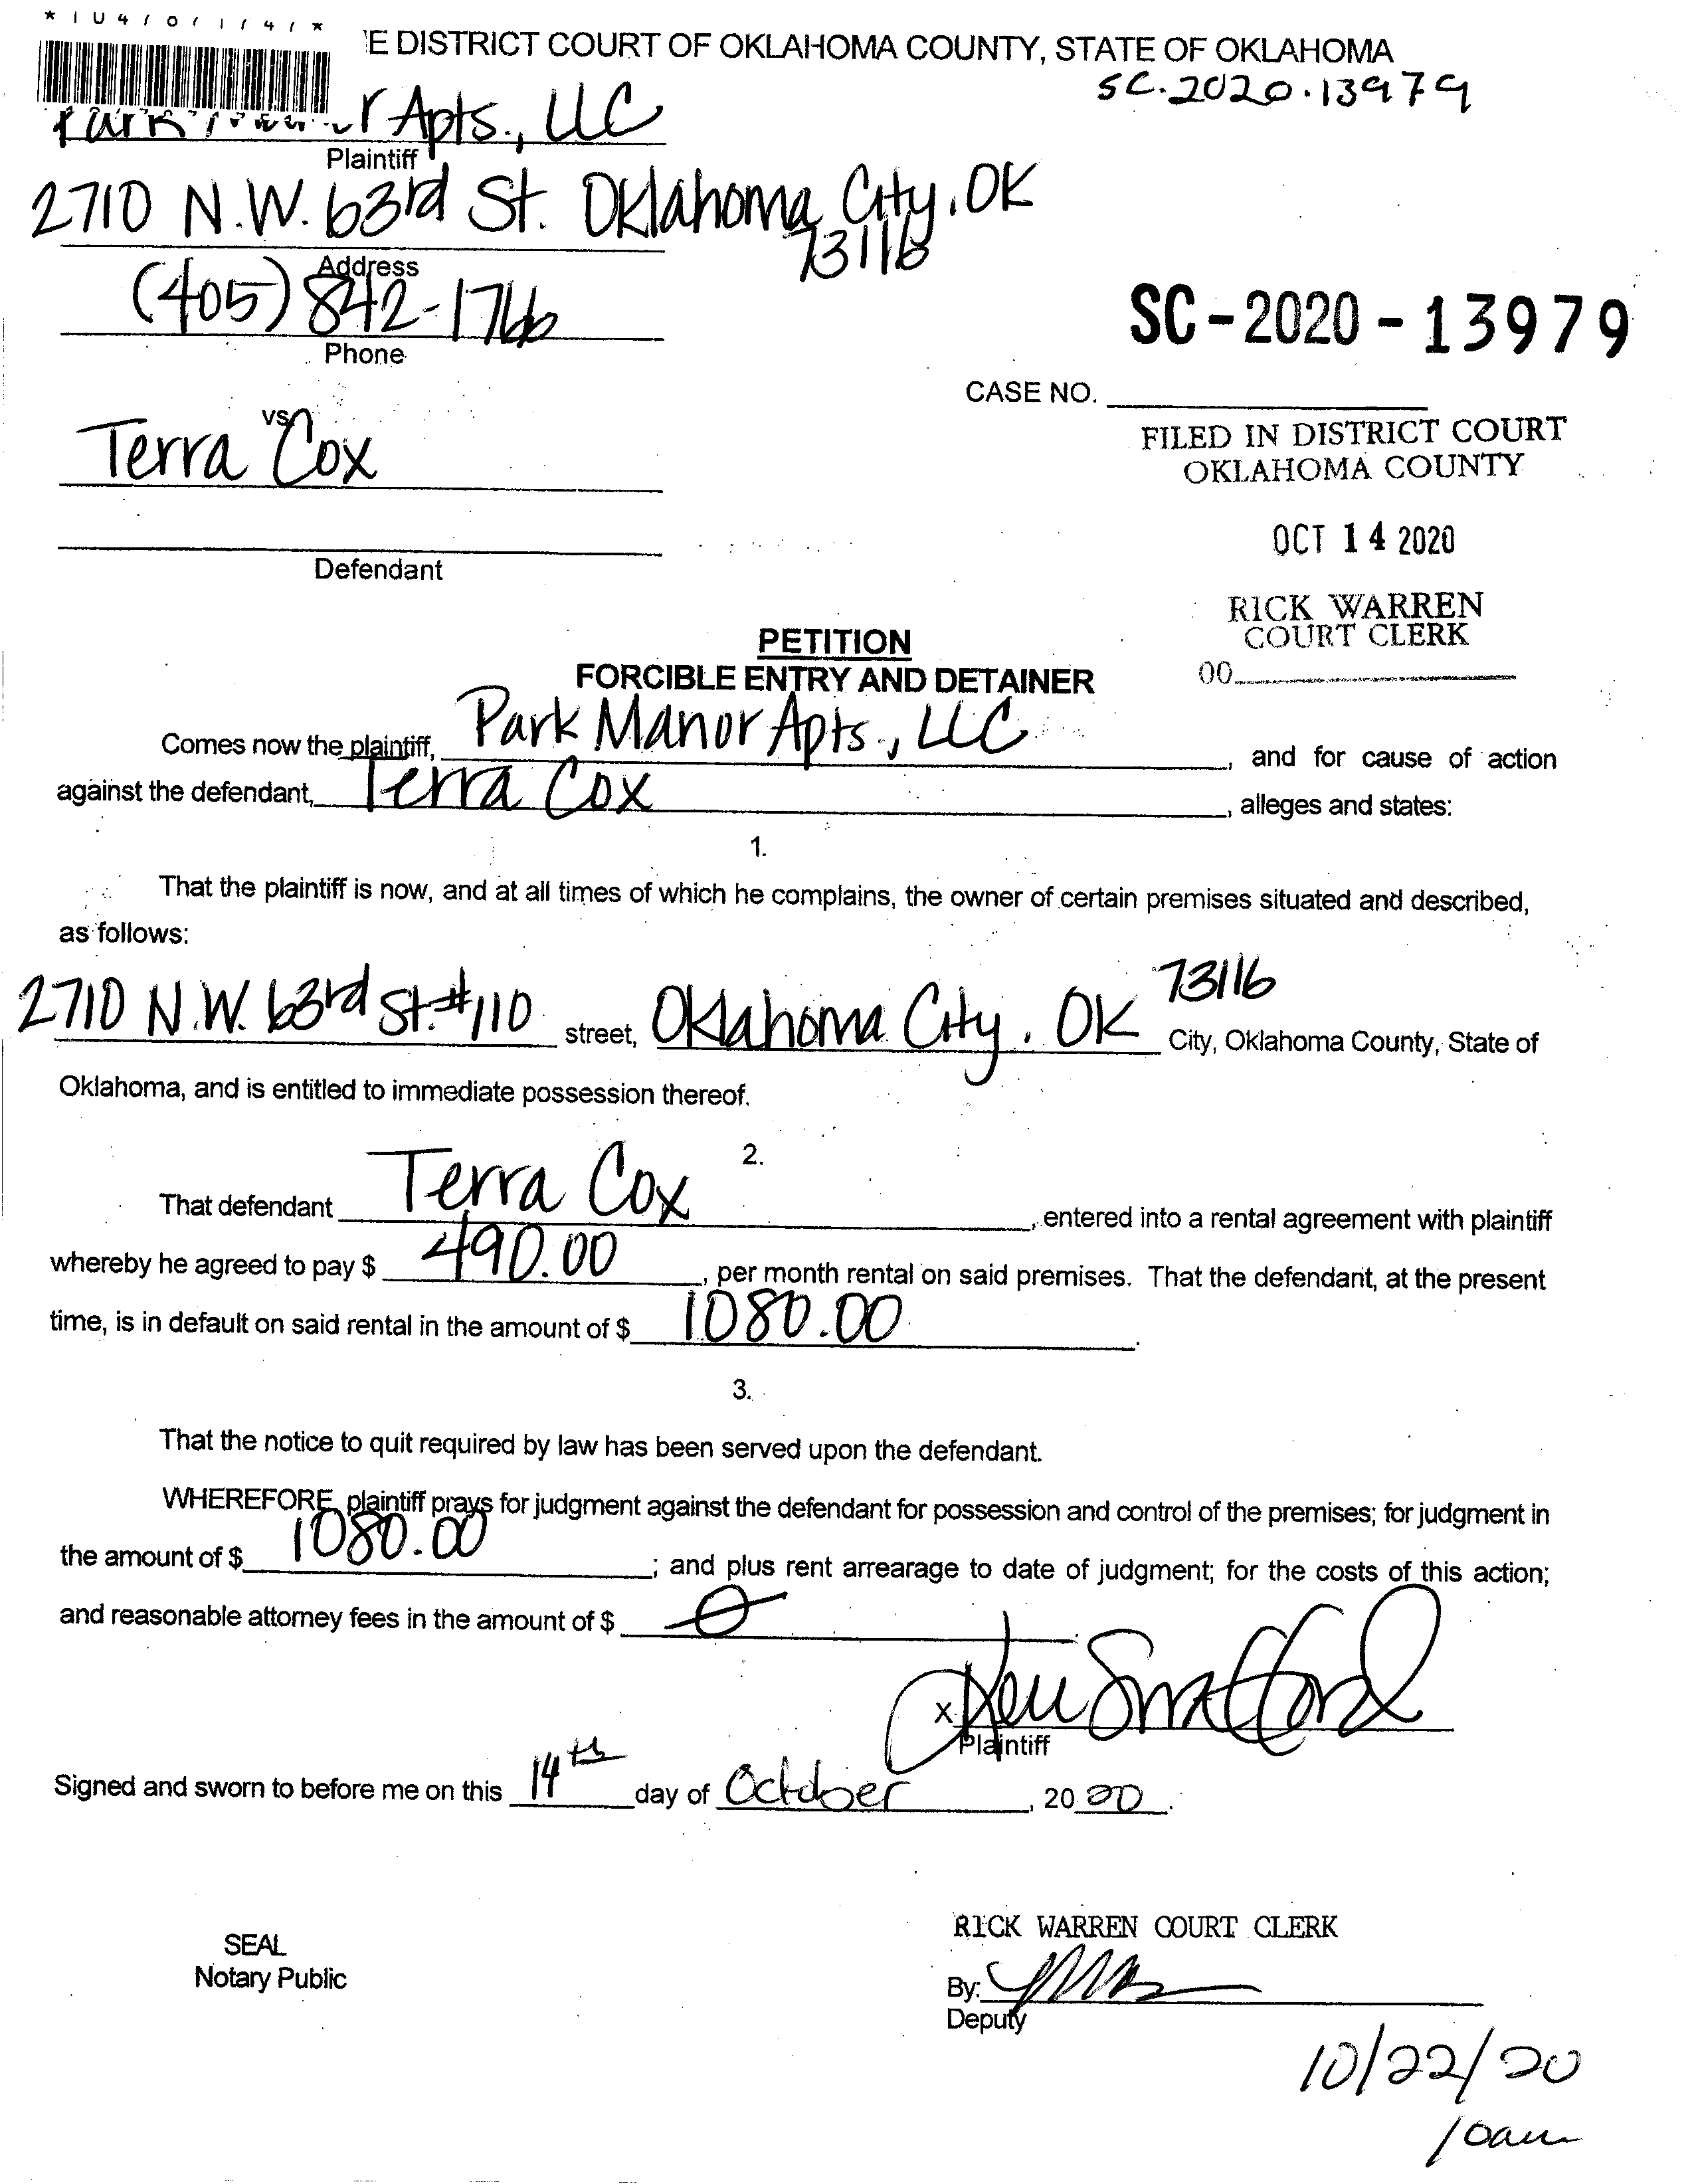 E DISTRICT COURT OF OKLAHOMA COUNTY, STATE OF OKLAHOMA
SC.2020.13979
Apts., LLC
Plaintiff
2710 N.W. 63rd St. Oklahoma City, OK
73116
Address
(405) 842-1766
Phone
SC-2020-13979
CASE NO.
vs
Terra Cox
FILED IN DISTRICT COURT
OKLAHOMA COUNTY
OCT 14 2020
Defendant
RICK WARREN
COURT CLERK
00
PETITION
FORCIBLE ENTRY AND DETAINER
Comes now the plaintiff, Park Manor Apts., LLC, and for cause of action
against the defendant, Terra Cox, alleges and states:
1.
That the plaintiff is now, and at all times of which he complains, the owner of certain premises situated and described,
as follows:
2710 N.W. 63rd St. #110 street, Oklahoma City, OK 73116 City, Oklahoma County, State of
Oklahoma, and is entitled to immediate possession thereof.
2.
That defendant Terra Cox, entered into a rental agreement with plaintiff
whereby he agreed to pay $ 490.00, per month rental on said premises. That the defendant, at the present
time, is in default on said rental in the amount of $ 1080.00.
3.
That the notice to quit required by law has been served upon the defendant.
WHEREFORE, plaintiff prays for judgment against the defendant for possession and control of the premises; for judgment in
the amount of $ 1080.00; and plus rent arrearage to date of judgment; for the costs of this action;
and reasonable attorney fees in the amount of $ 0.
x
Plaintiff
Signed and sworn to before me on this 14th day of October, 2020.
RICK WARREN COURT CLERK
SEAL
Notary Public
By:
Deputy
10/22/20
10am